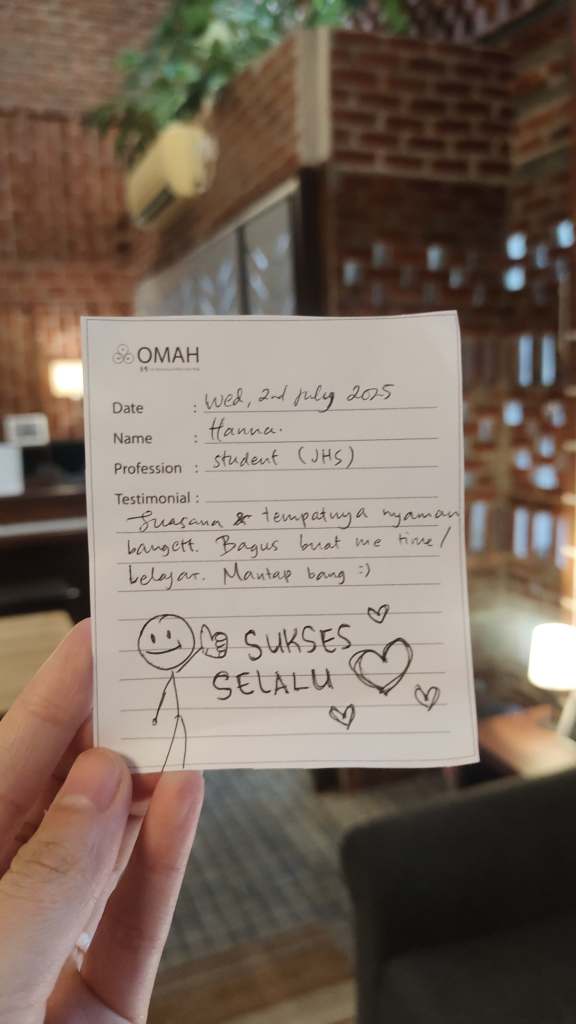 OMAH
Date : Wed, 2nd July 2025
Name : Hanna.
Profession : student (JHS)
Testimonial :
Suasana & tempatnya nyaman
bangett. Bagus buat me time/
belajar. Mantap bang :)
SUKSES
SELALU